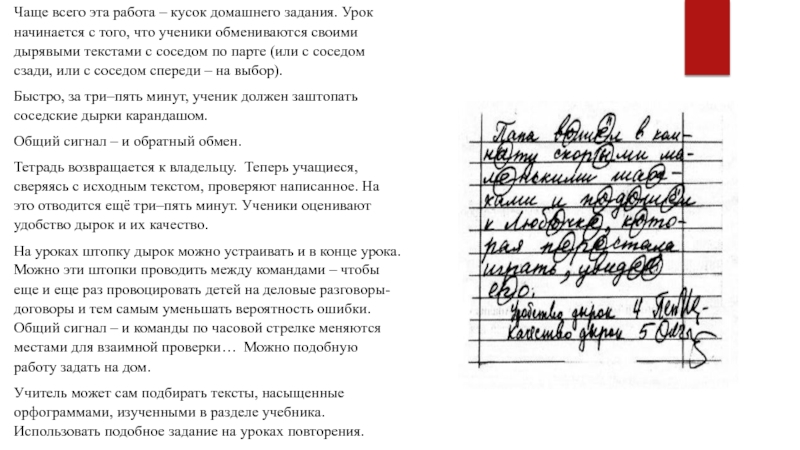 Чаще всего эта работа – кусок домашнего задания. Урок
начинается с того, что ученики обмениваются своими
дырявыми текстами с соседом по парте (или с соседом
сзади, или с соседом спереди – на выбор).
Быстро, за три–пять минут, ученик должен заштопать
соседские дырки карандашом.
Общий сигнал – и обратный обмен.
Тетрадь возвращается к владельцу. Теперь учащиеся,
сверяясь с исходным текстом, проверяют написанное. На
это отводится ещё три–пять минут. Ученики оценивают
удобство дырок и их качество.
На уроках штопку дырок можно устраивать и в конце урока.
Можно эти штопки проводить между командами – чтобы
еще и еще раз провоцировать детей на деловые разговоры-
договоры и тем самым уменьшать вероятность ошибки.
Общий сигнал – и команды по часовой стрелке меняются
местами для взаимной проверки… Можно подобную
работу задать на дом.
Учитель может сам подбирать тексты, насыщенные
орфограммами, изученными в разделе учебника.
Использовать подобное задание на уроках повторения.
Папа вошёл в ком-
нату скорыми ма-
ленькими шаж-
ками и подошёл
к Любочке, кото-
рая перестала
играть, увидев
его.
Удобство дырок 4
Качество дырок 5